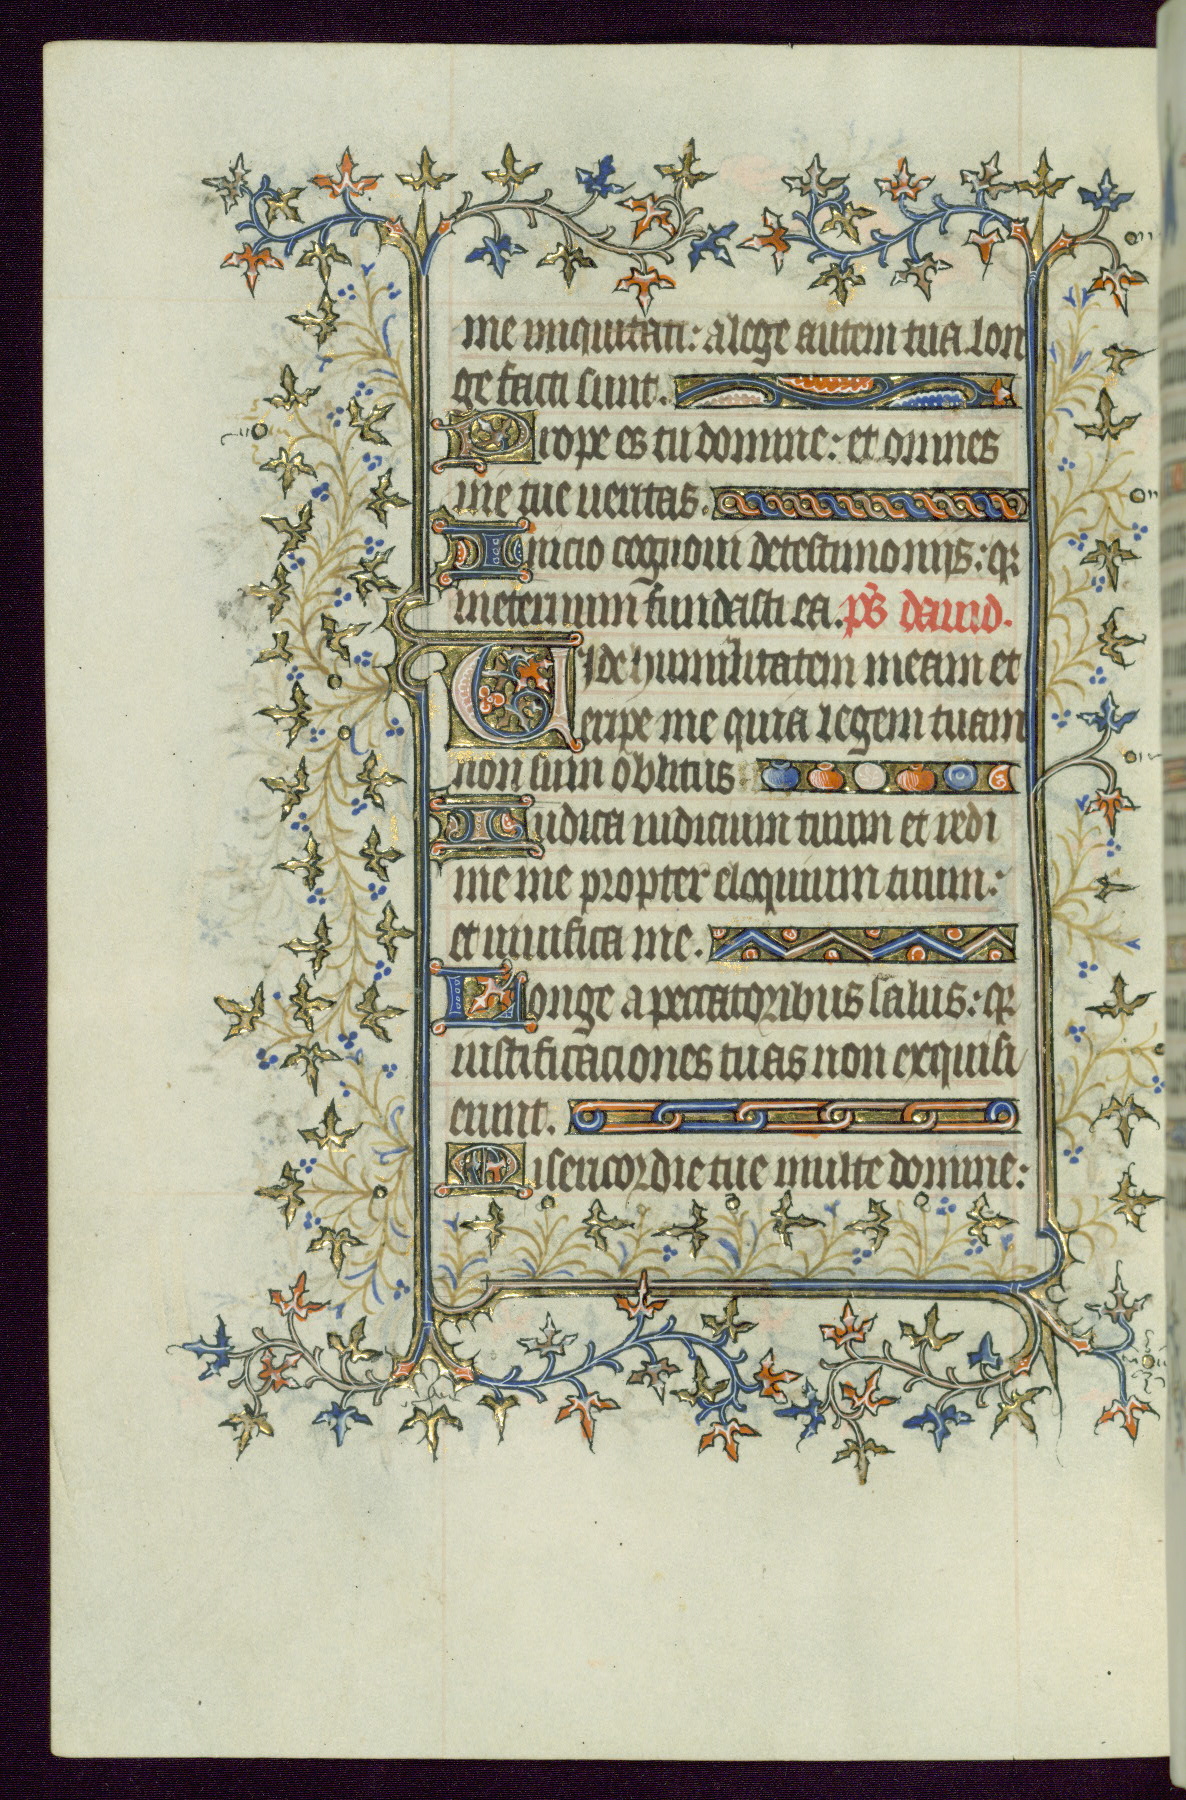 me iniquitati: a lege autem tua lon
ge facti sunt.
Prope es tu domine: et omnes
uie tue ueritas.
Inicio cognoui de testimonijs: qr
in eternum fundasti ea. ps dauid.
Vide humilitatem meam et
eripe me quia legem tuam
non sum oblitus
Iudica iudicium tuum et redi
me me propter eloquium tuum:
et uiuifica me.
Longe a peccatoribus salus: qr
iustificaciones tuas non exquisi
erunt.
Misericordie tue multe domine: